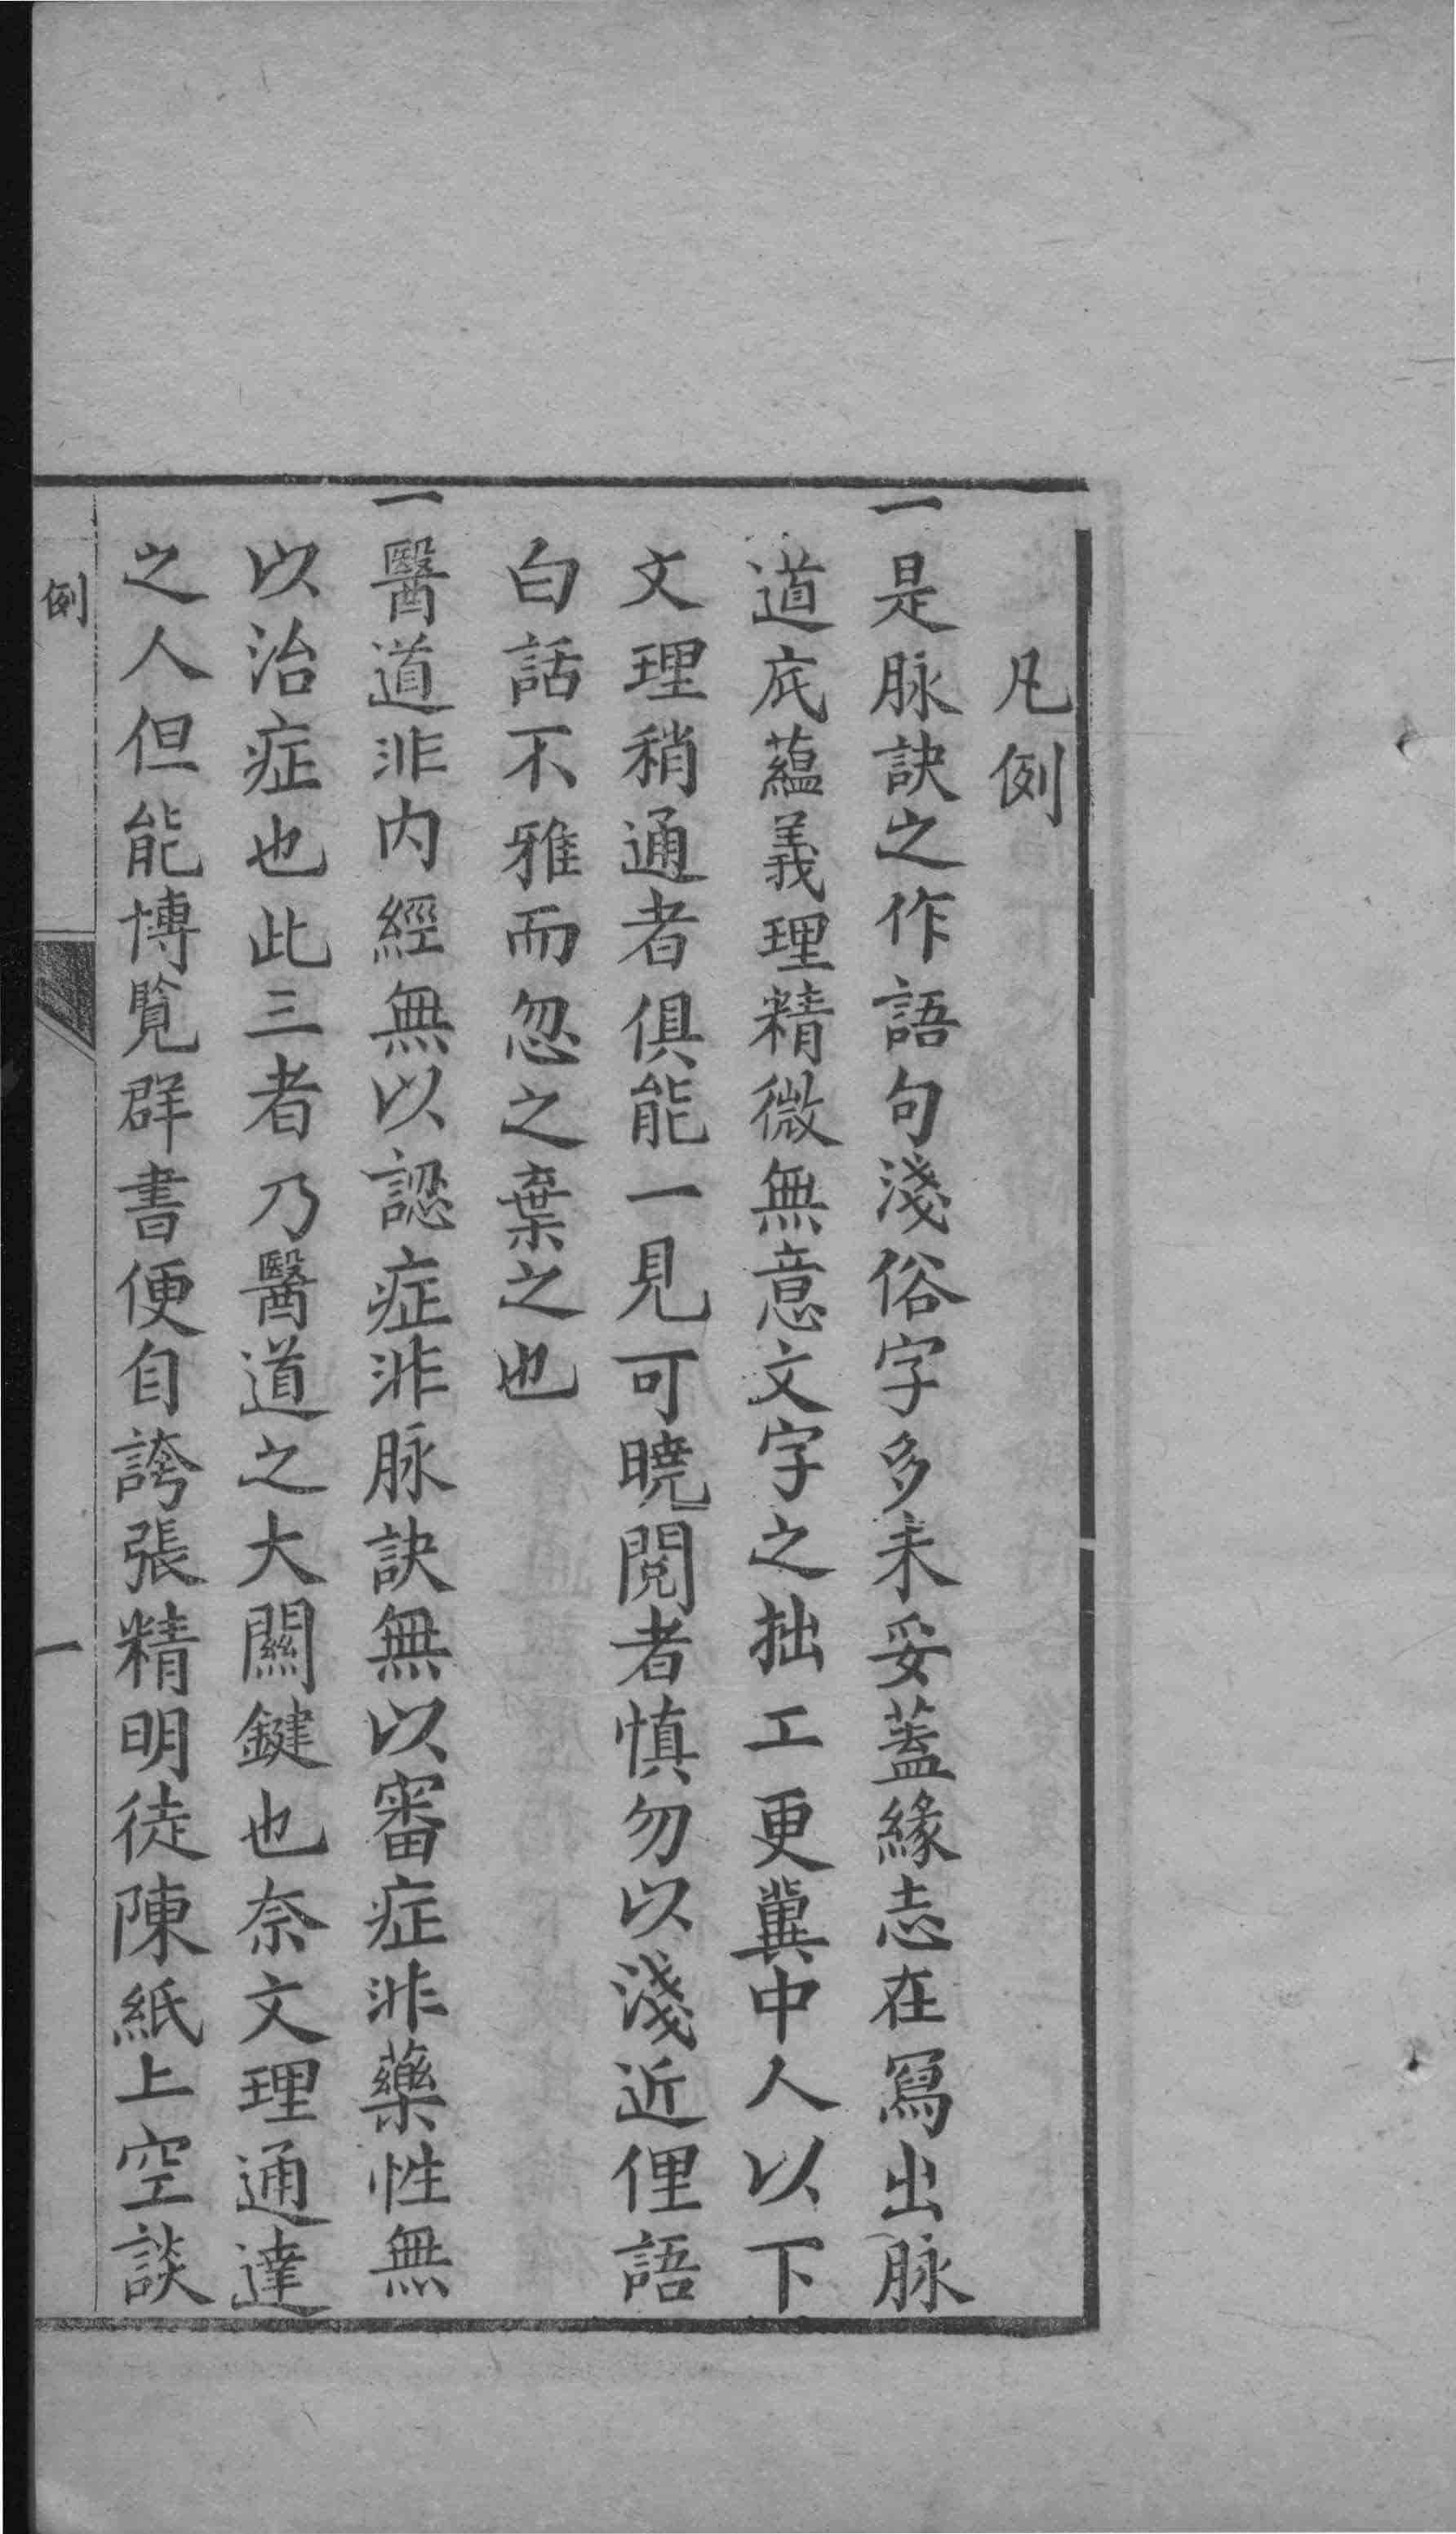 凡例
一是脉訣之作語句淺俗字多未妥蓋緣志在寫出脉
道底蘊義理精微無意文字之拙工更冀中人以下
文理稍通者俱能一見可曉閱者慎勿以淺近俚語
白話不雅而忽之棄之也
一醫道非内經無以認症非脉訣無以審症非藥性無
以治症也此三者乃醫道之大關鍵也奈文理通達
之人但能博覧群書便自誇張精明徒陳紙上空談
例
一